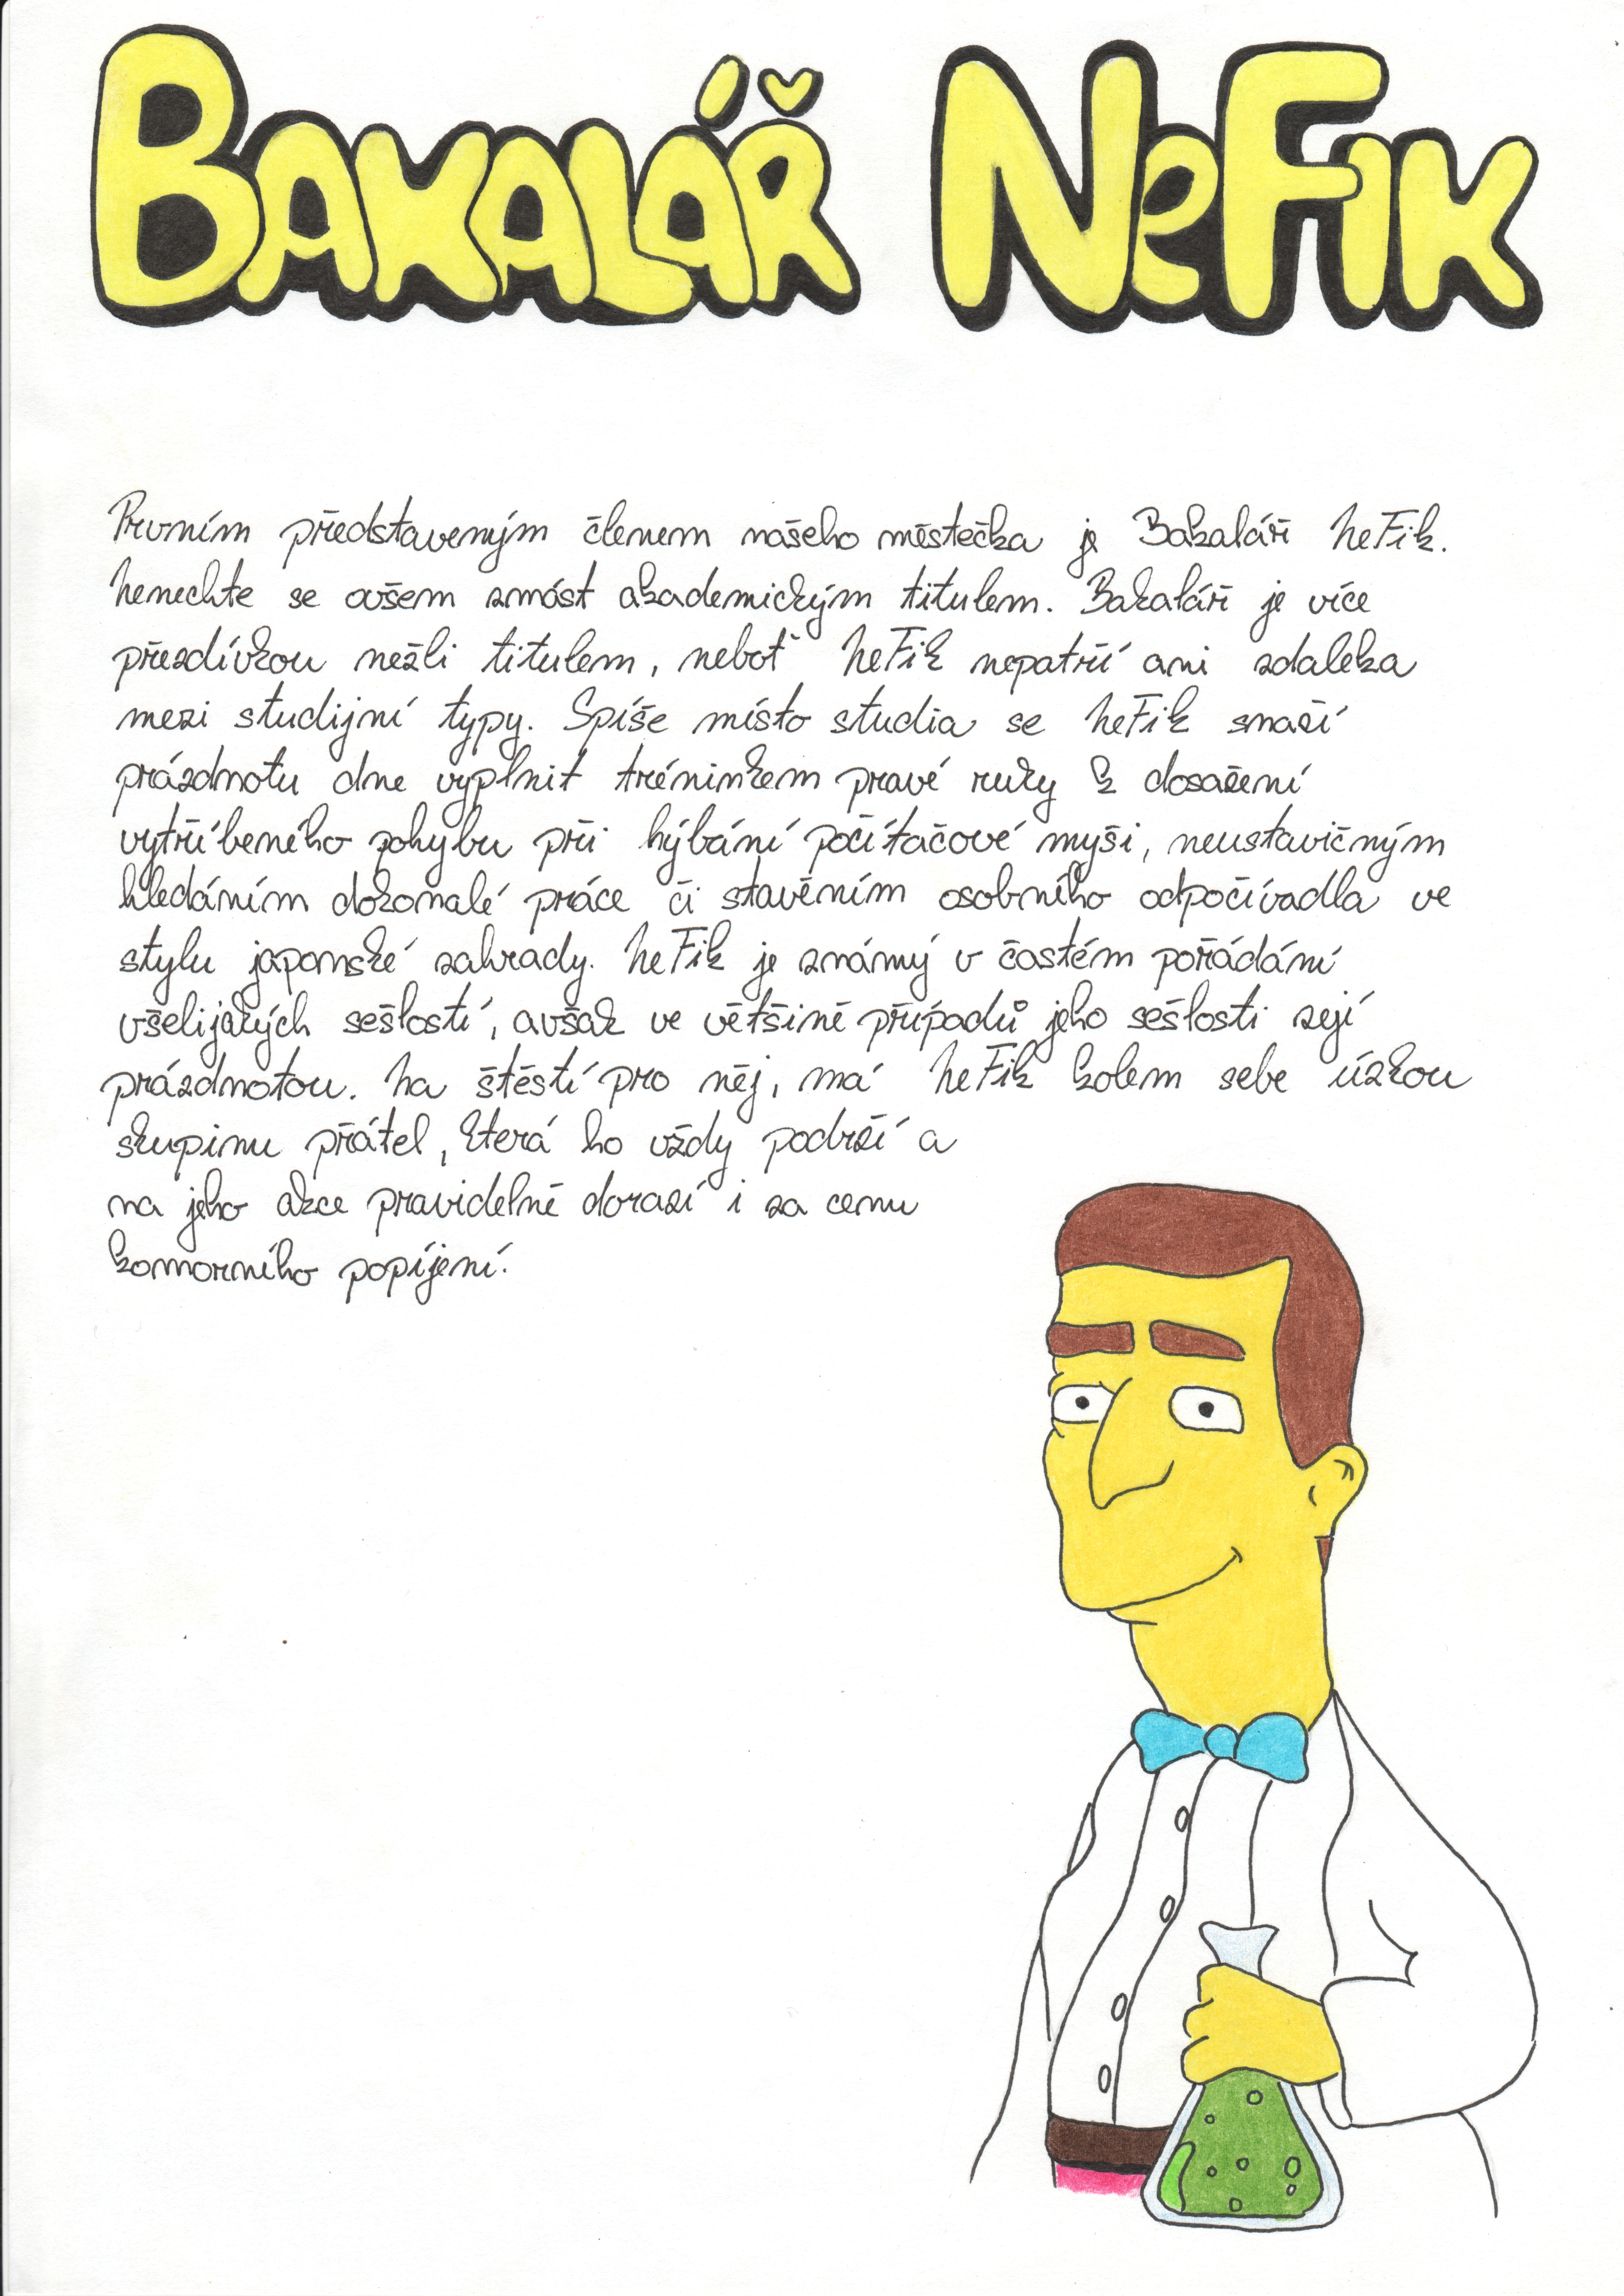 BAKALÁŘ NeFIK
Prvním představeným členem našeho městečka je Bakalář NeFik.
Nenechte se ovšem zmást akademickým titulem. Bakalář je více
přezdívkou nežli titulem, neboť NeFik nepatří ani zdaleka
mezi studijní typy. Spíše místo studia se NeFik snaží
prázdnotu dne vyplnit tréninkem pravé ruky k dosažení
vytříbeného pohybu při hýbání počítačové myši, neustavičným
hledáním dokonalé práce či stavěním osobního odpočívadla ve
stylu japonské zahrady. NeFik je známý v častém pořádání
všelijakých sešlostí, avšak ve většině případů jeho sešlosti zejí
prázdnotou. Na štěstí pro něj, má NeFik kolem sebe úzkou
skupinu přátel, která ho vždy podrží a
na jeho akce pravidelně dorazí i za cenu
komorního popíjení.